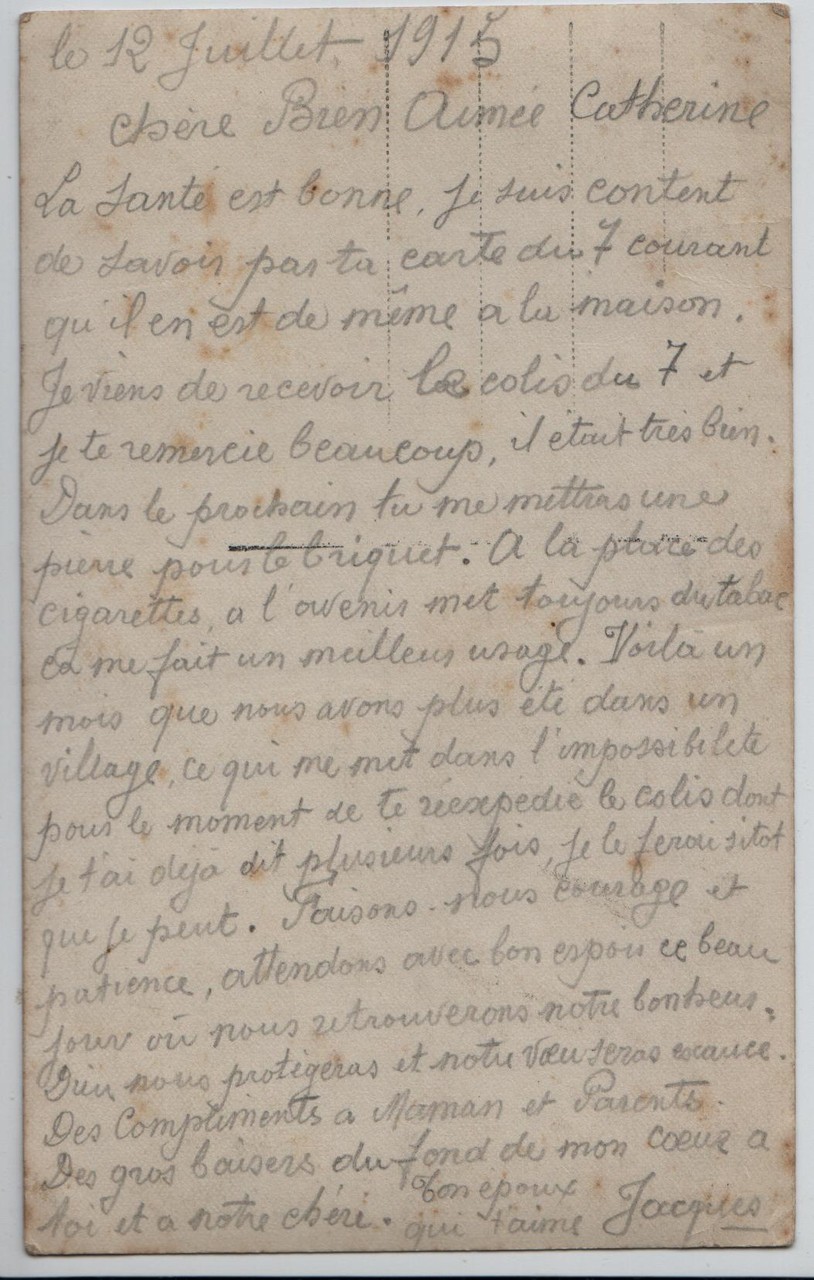 le 12 Juillet 1915
Chère Bien Aimée Catherine
La Santé est bonne, je suis content
de savoir par ta carte du 7 courant
qu'il en est de même a la maison.
Je viens de recevoir le colis du 7 et
je te remercie beaucoup, il était très bien.
Dans le prochain tu me mettras une
pierre pour le briquet. A la place des
cigarettes, a l'avenir met toujours du tabac
ca me fait un meilleur usage. Voilà un
mois que nous avons plus été dans un
village, ce qui me met dans l'impossibileté
pour le moment de te réexpédié le colis dont
je t'ai déjà dit plusieurs fois, je le ferai sitot
que je peut. Faisons-nous courage et
patience, attendons avec bon espoir ce beau
jour où nous retrouverons notre bonheur.
Dieu nous protègeras et notre vœu seras exaucé.
Des Compliments a Maman et Parents.
Des gros baisers du fond de mon cœur a
toi et a notre chéri. Ton époux
qui t'aime Jacques